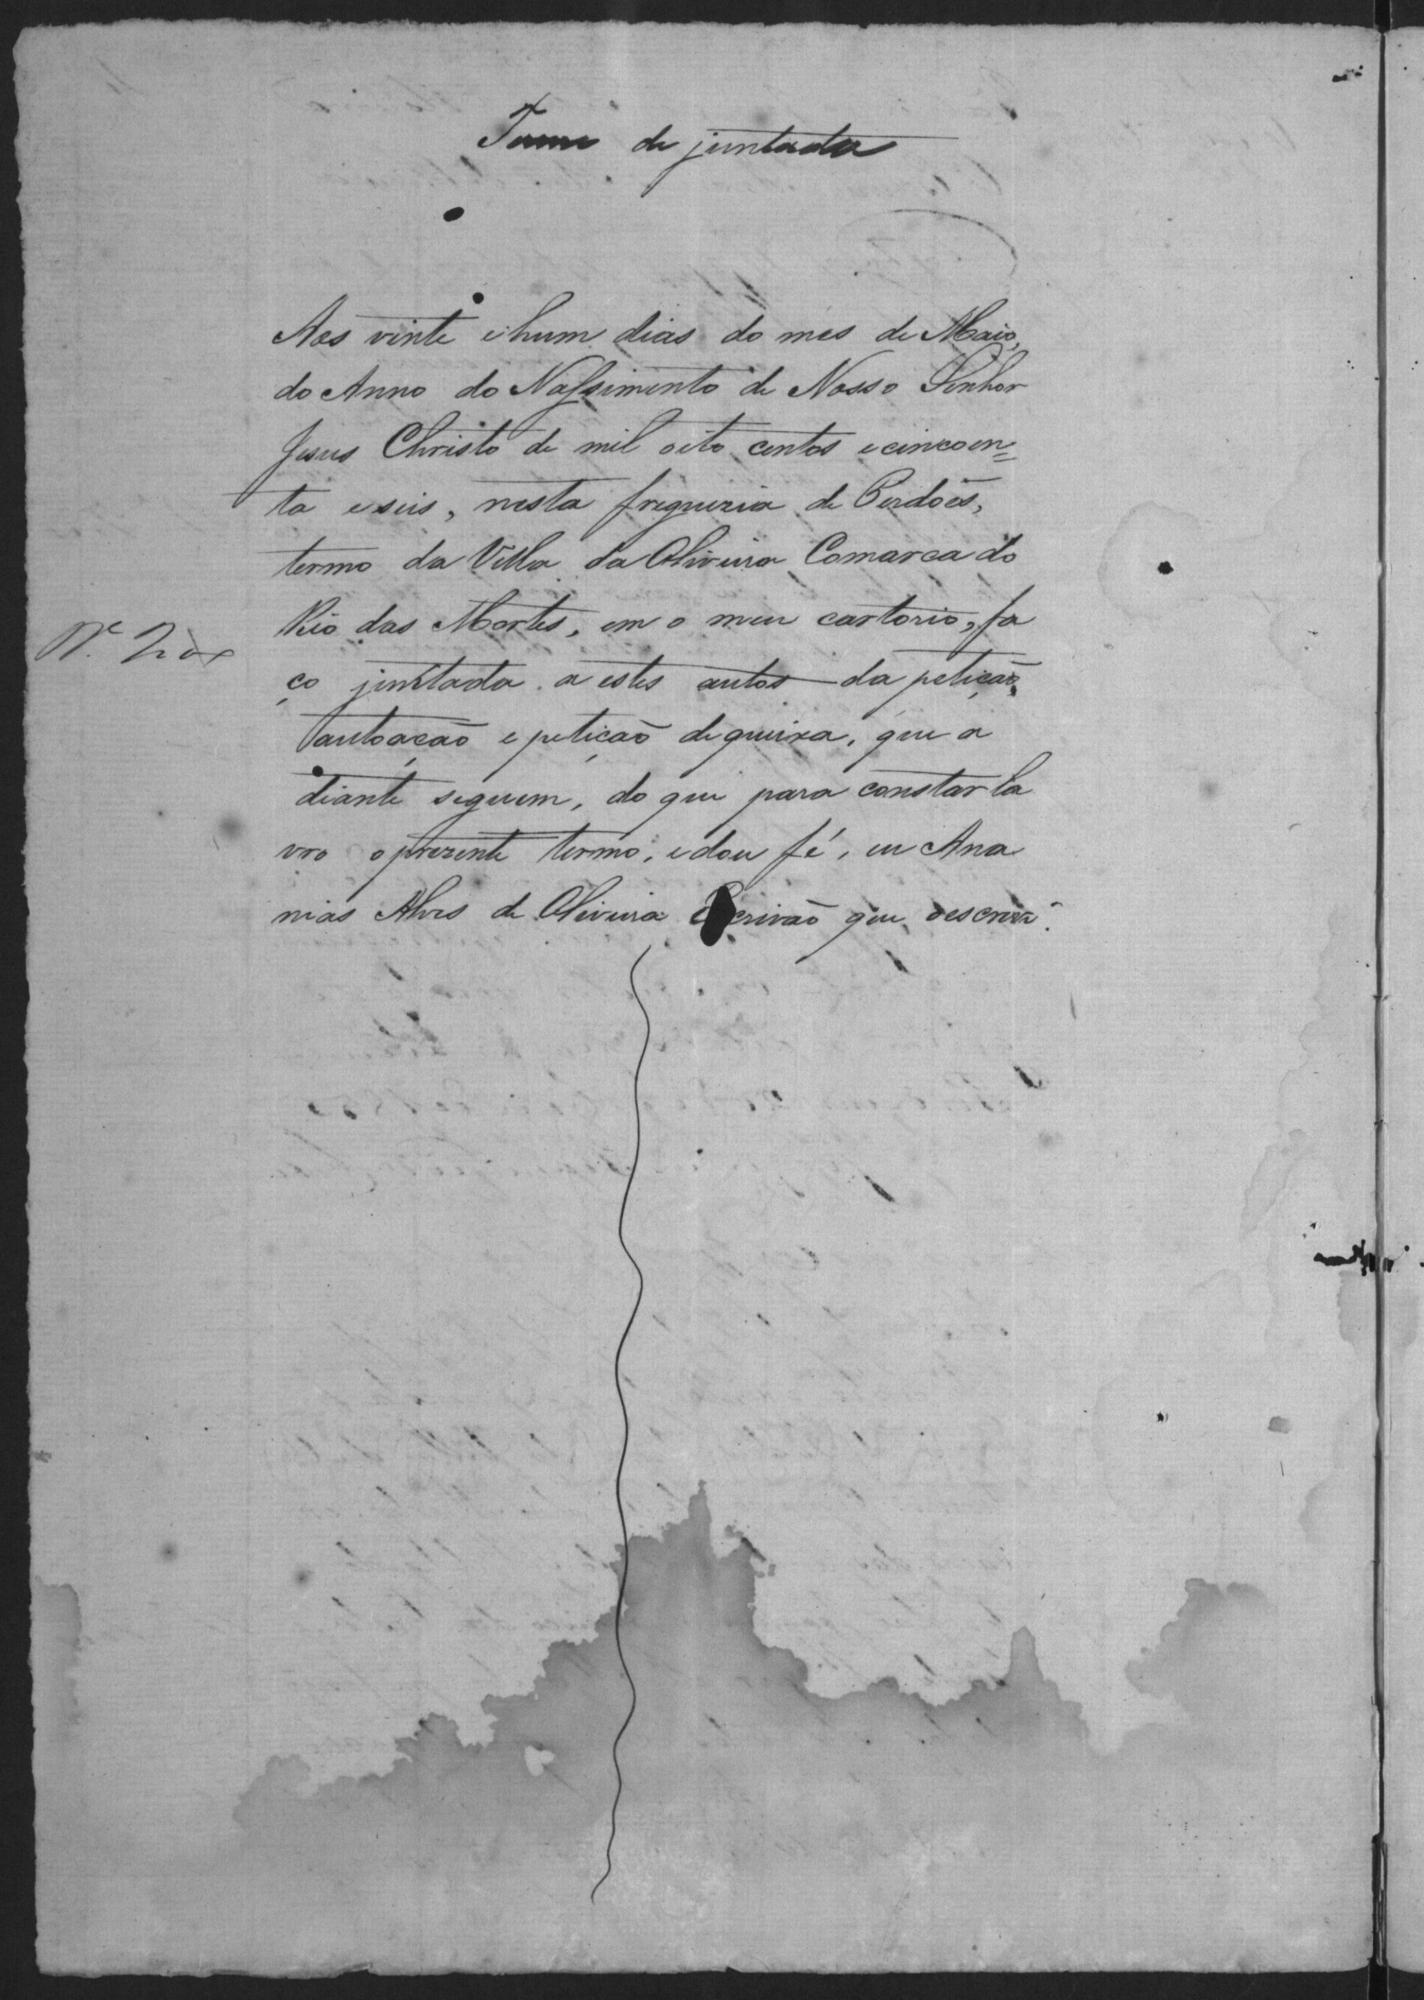 Termo de juntada
Aos vinte ehum dias do mes de Maio,
do Anno do Nassimento de Nosso Senhor
Jesus Christo de mil oito centos ecincoen=
ta eseis, nesta freguezia de Perdoẽs,
termo da Villa da Oliveira Comarca do
Rio das Mortes, em o meu cartorio, fa
ço juntada a estes autos da petição,
autoação e petição dequeixa, que a
diante seguem, do que para constar la
vro oprezente termo, edou fé, eu Ana
nias Alves de Oliveira Escrivão que oescrevi.